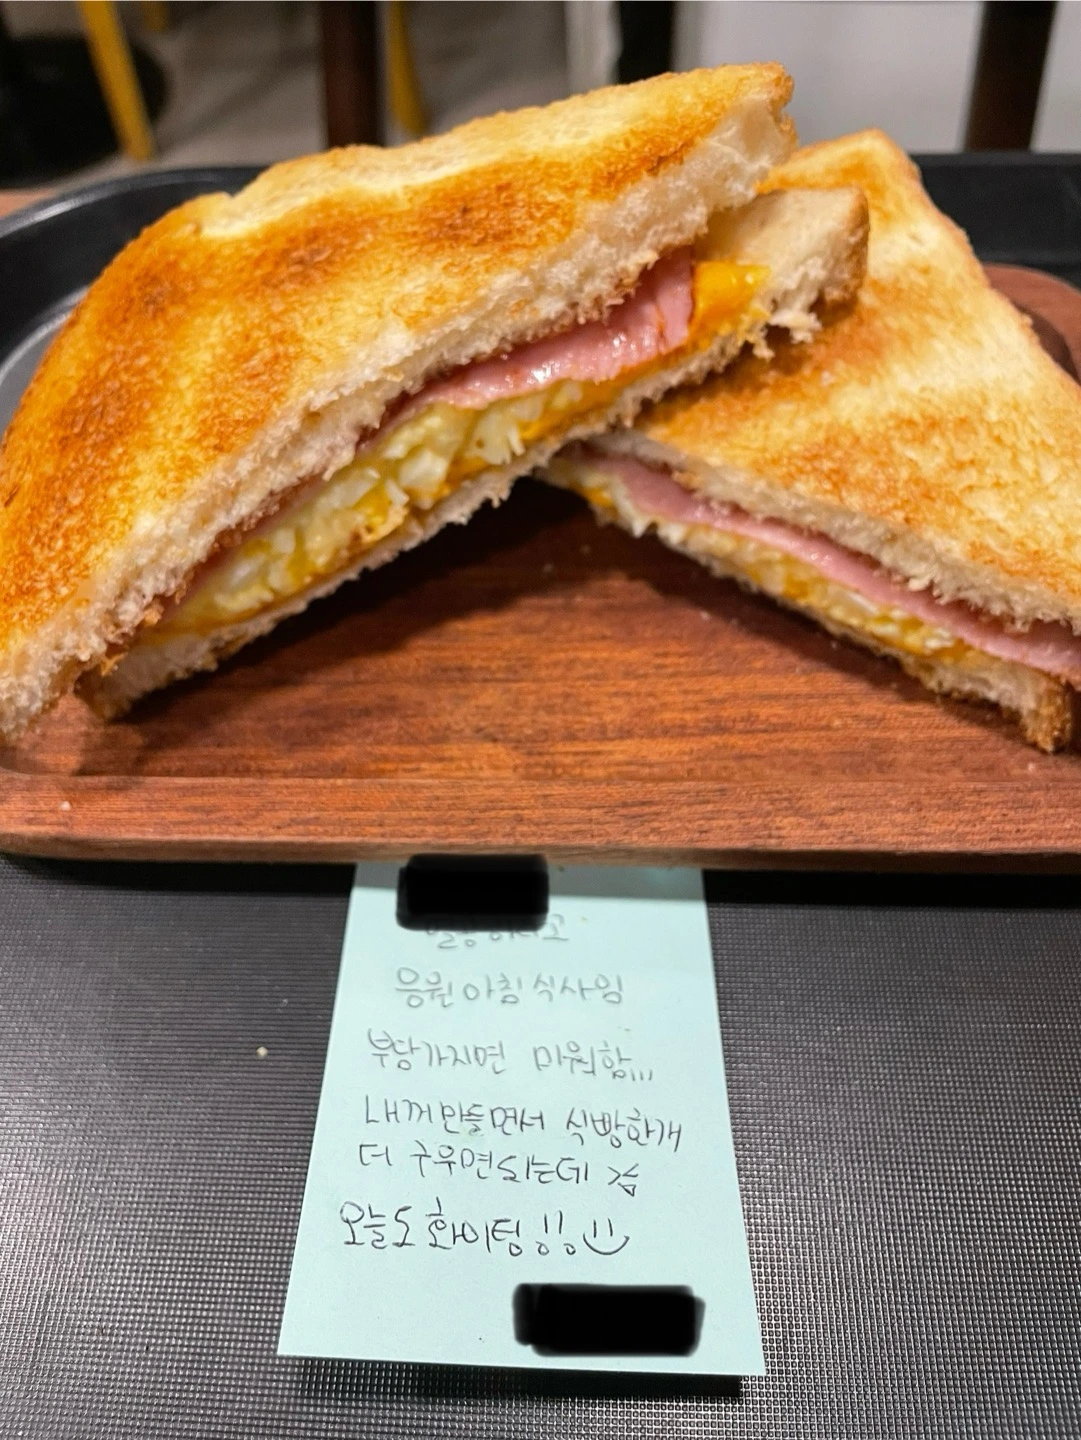 응원 아침 식사임
부담가지면 미워함,,,
내꺼 만들면서 식빵한개
더 구우면 되는데 쯥
오늘도 화이팅!!